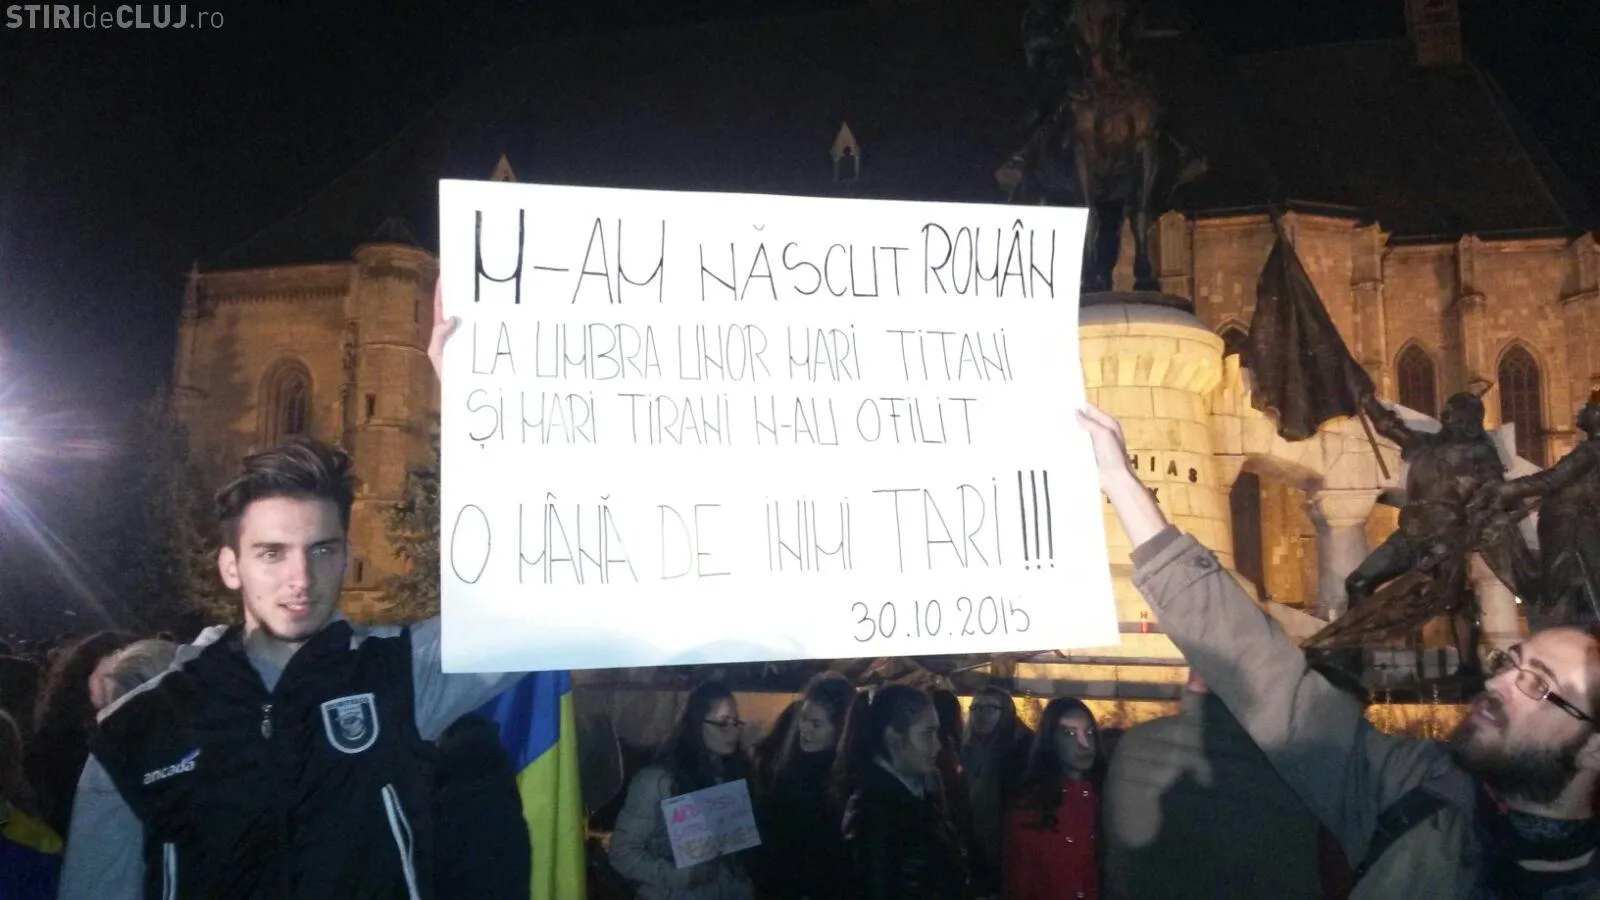 STIRIdeCLUJ.ro
M-AM NĂSCUT ROMÂN
LA UMBRA UNOR MARI TITANI
ȘI MARI TIRANI N-AU OFILIT
O MÂNĂ DE INIMI TARI!!!
30.10.2015
HIAS
ancada